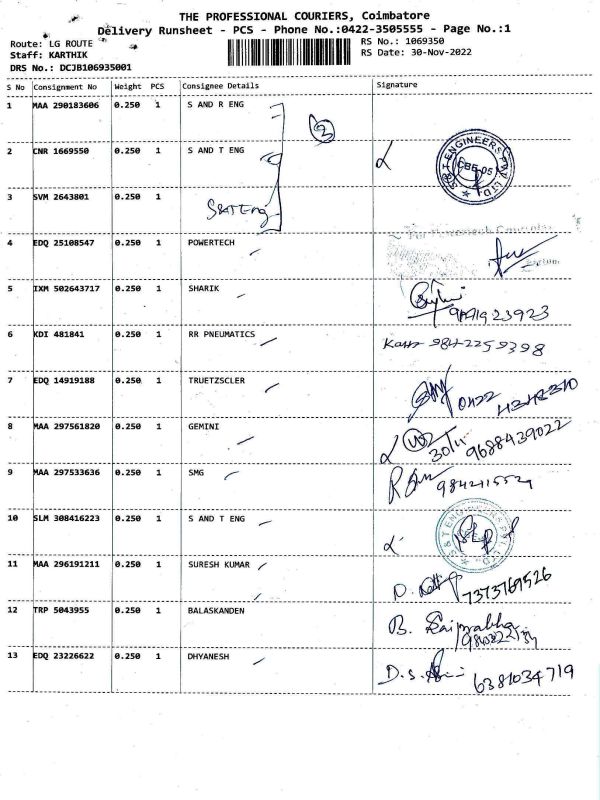 THE PROFESSIONAL COURIERS, Coimbatore
Delivery Runsheet - PCS - Phone No.:0422-3505555 - Page No.:1
Route: LG ROUTE
Staff: KARTHIK
DRS No.: DCJB106935001
RS No.: 1069350
RS Date: 30-Nov-2022
S No Consignment No Weight PCS Consignee Details Signature
1 MAA 290183606 0.250 1 S AND R ENG
3
2 CNR 1669550 0.250 1 S AND T ENG
S & T ENGINEERS PVT LTD
CBE-05
3 SVM 2643801 0.250 1
S&T Eng
4 EDQ 25108547 0.250 1 POWERTECH
For Powertech
5 IXM 502643717 0.250 1 SHARIK
6 KDI 481841 0.250 1 RR PNEUMATICS
9842259398
7 EDQ 14919188 0.250 1 TRUETZSCLER
0422
8 MAA 297561820 0.250 1 GEMINI
30/11 9688439022
9 MAA 297533636 0.250 1 SMG
10 SLM 308416223 0.250 1 S AND T ENG
S & T ENGINEERS PVT LTD
11 MAA 296191211 0.250 1 SURESH KUMAR
7373769526
12 TRP 5043955 0.250 1 BALASKANDEN
B. Saiprabha
13 EDQ 23226622 0.250 1 DHYANESH
D.S. 6381034719